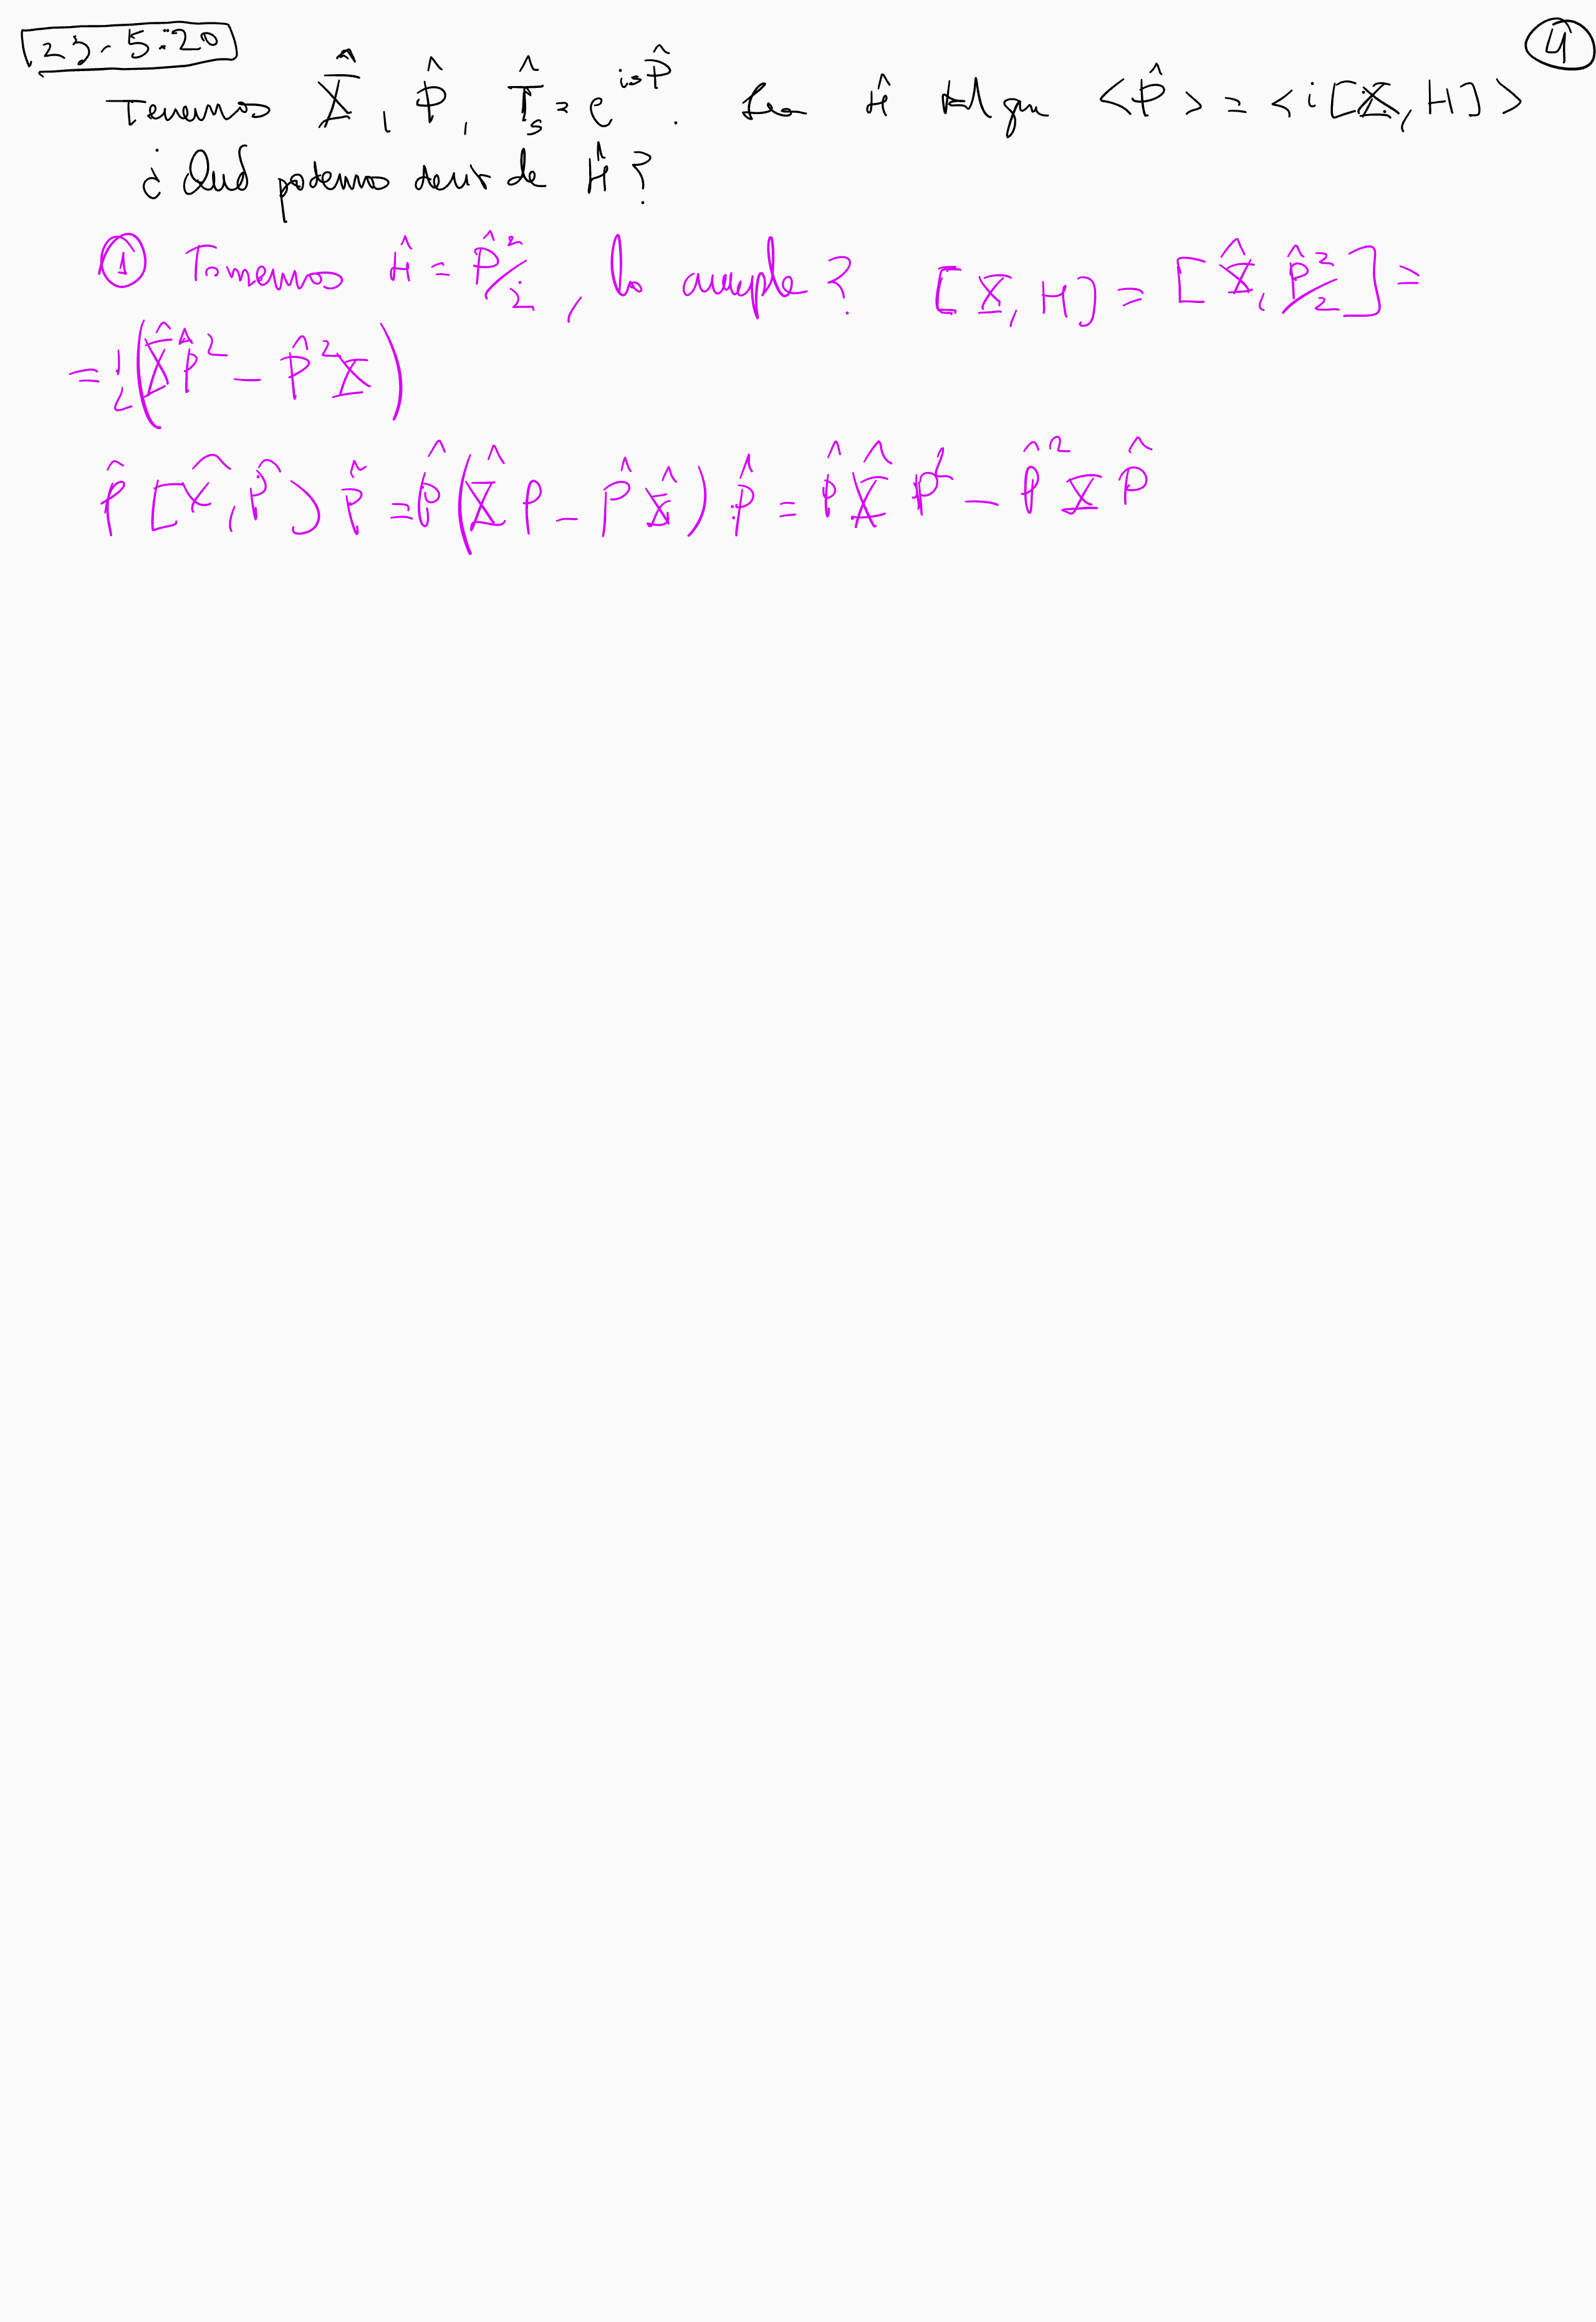 23-5-20
④
Tenemos X̂, P̂, T̂ₛ = e^{isP̂}. Sea Ĥ tal que <P̂> = <i[X, H]>
¿Qué podemos decir de Ĥ?
① Tomemos Ĥ = P̂²/2, lo cumple? [X, H] = [X̂, P̂²/2] =
= 1/2 (X̂P̂² - P̂²X)
P̂[X̂, P̂]P̂ = P̂(X̂P - P̂X̂)P̂ = P̂X̂P̂² - P̂²XP̂